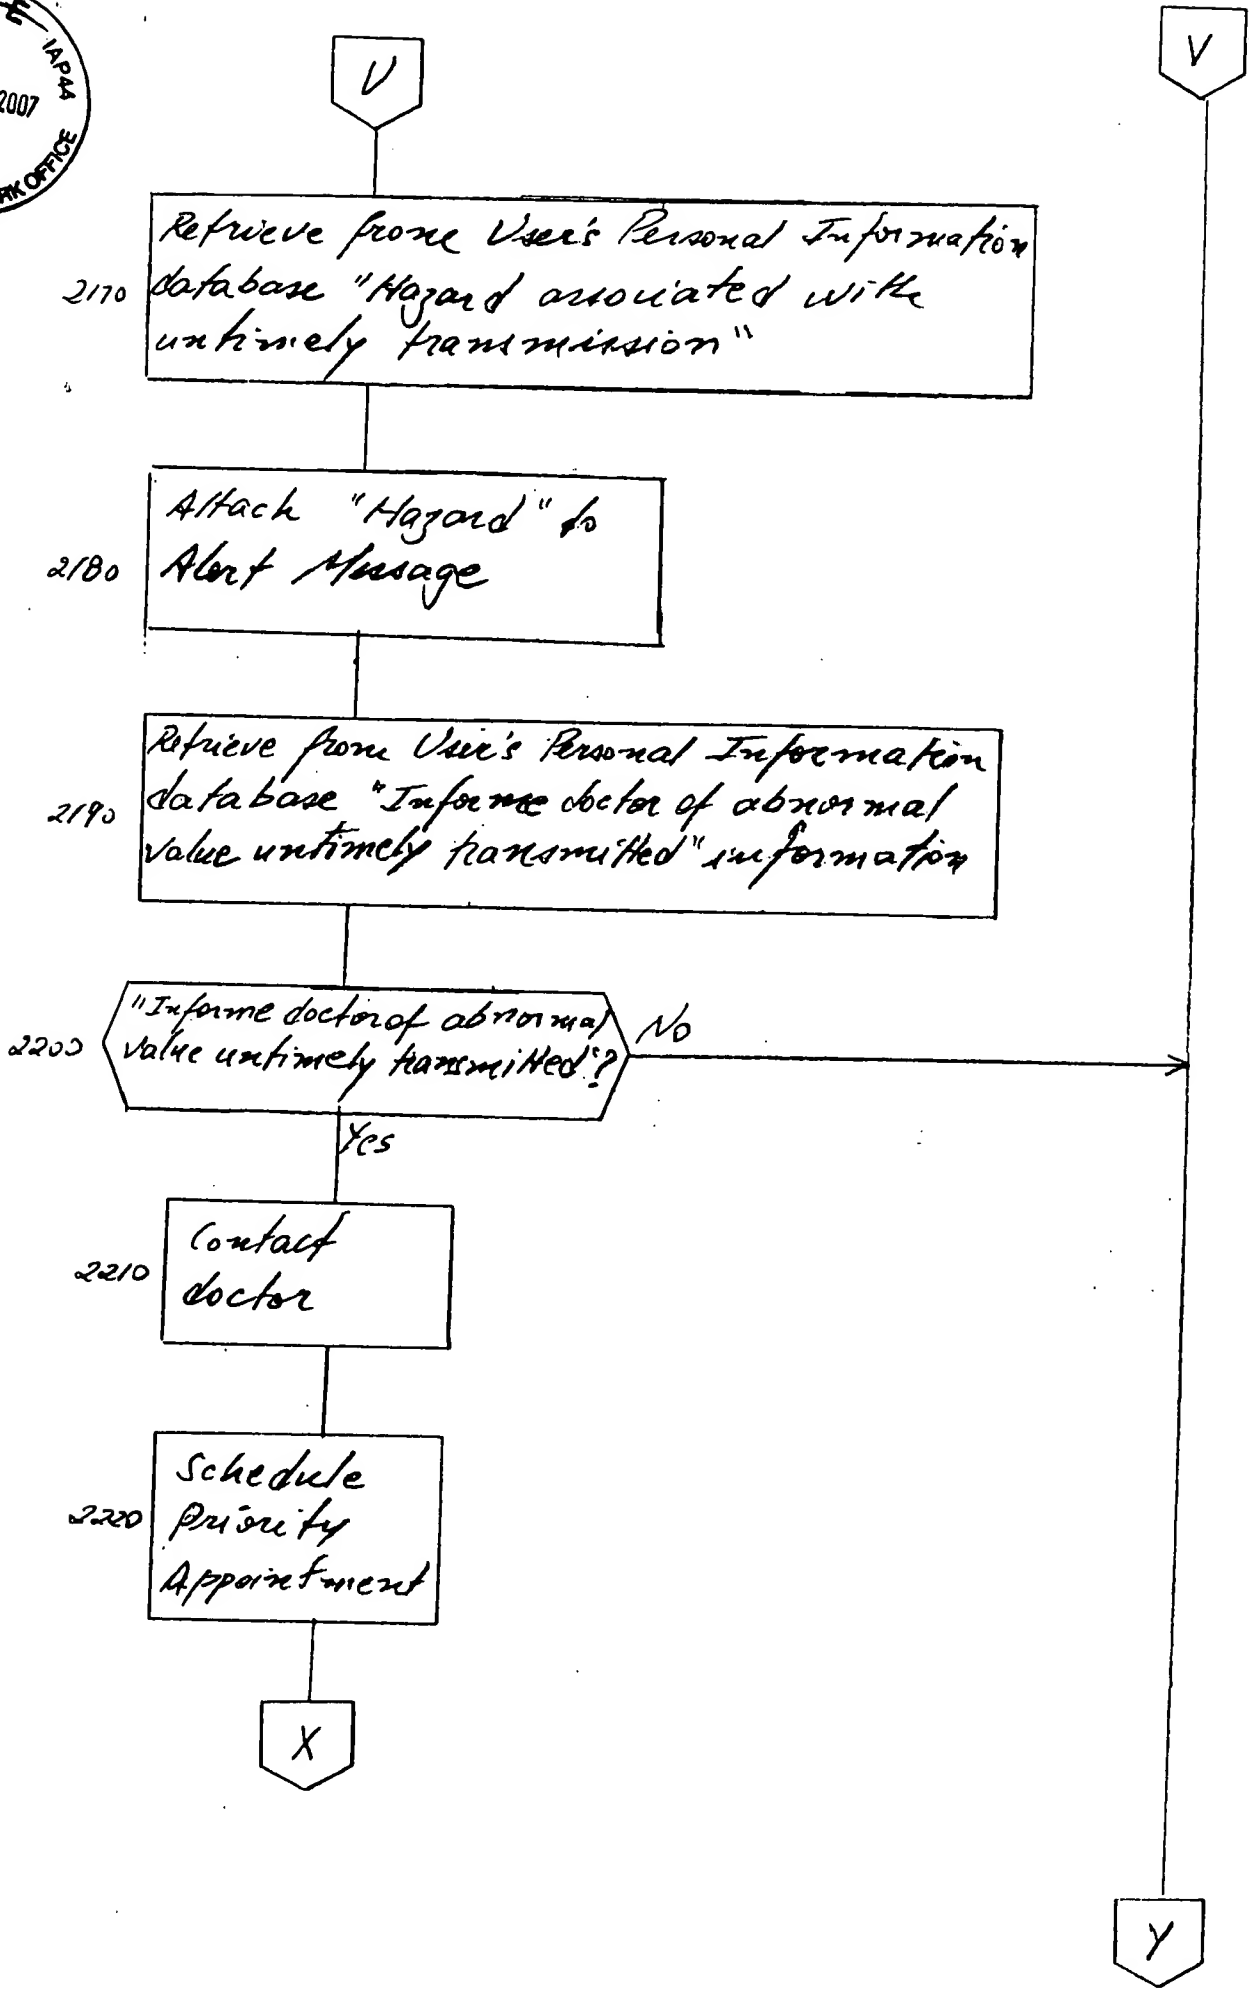 IAP44
2007
RK OFFICE
U
V
Retrieve from User's Personal Information
2170 database "Hazard associated with
untimely transmission"
Attach "Hazard" to
2180 Alert Message
Retrieve from User's Personal Information
2190 database "Informe doctor of abnormal
value untimely transmitted" information
"Informe doctor of abnormal
2200 value untimely transmitted"?
No
Yes
Contact
2210 doctor
Schedule
2220 Priority
Appointment
X
Y